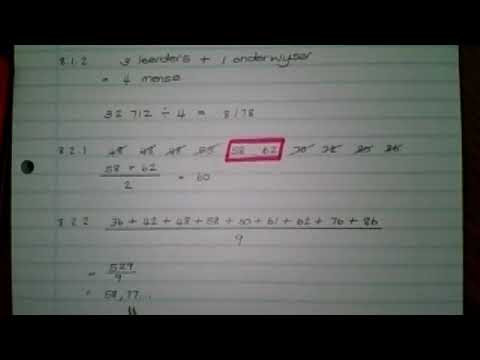 8.1.2 3 leerders + 1 onderwyser
= 4 mense
32 712 ÷ 4 = 8178
8.2.1 48 48 48 58 62
58 + 62
2
= 60
8.2.2 36 + 42 + 48 + 58 + 60 + 61 + 62 + 76 + 86
9
= 529
9
= 58,77...